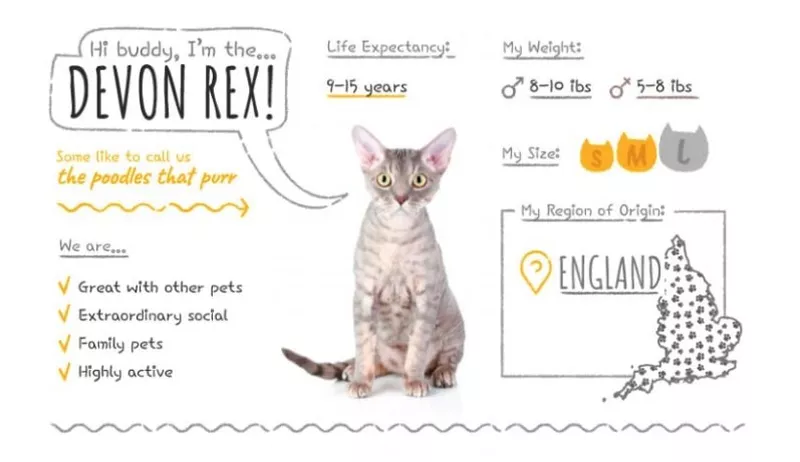 Hi buddy, I'm the...
DEVON REX!
Some like to call us
the poodles that purr
We are...
Great with other pets
Extraordinary social
Family pets
Highly active
Life Expectancy:
9-15 years
My Weight:
8-10 lbs 5-8 lbs
My Size: S M L
My Region of Origin:
ENGLAND